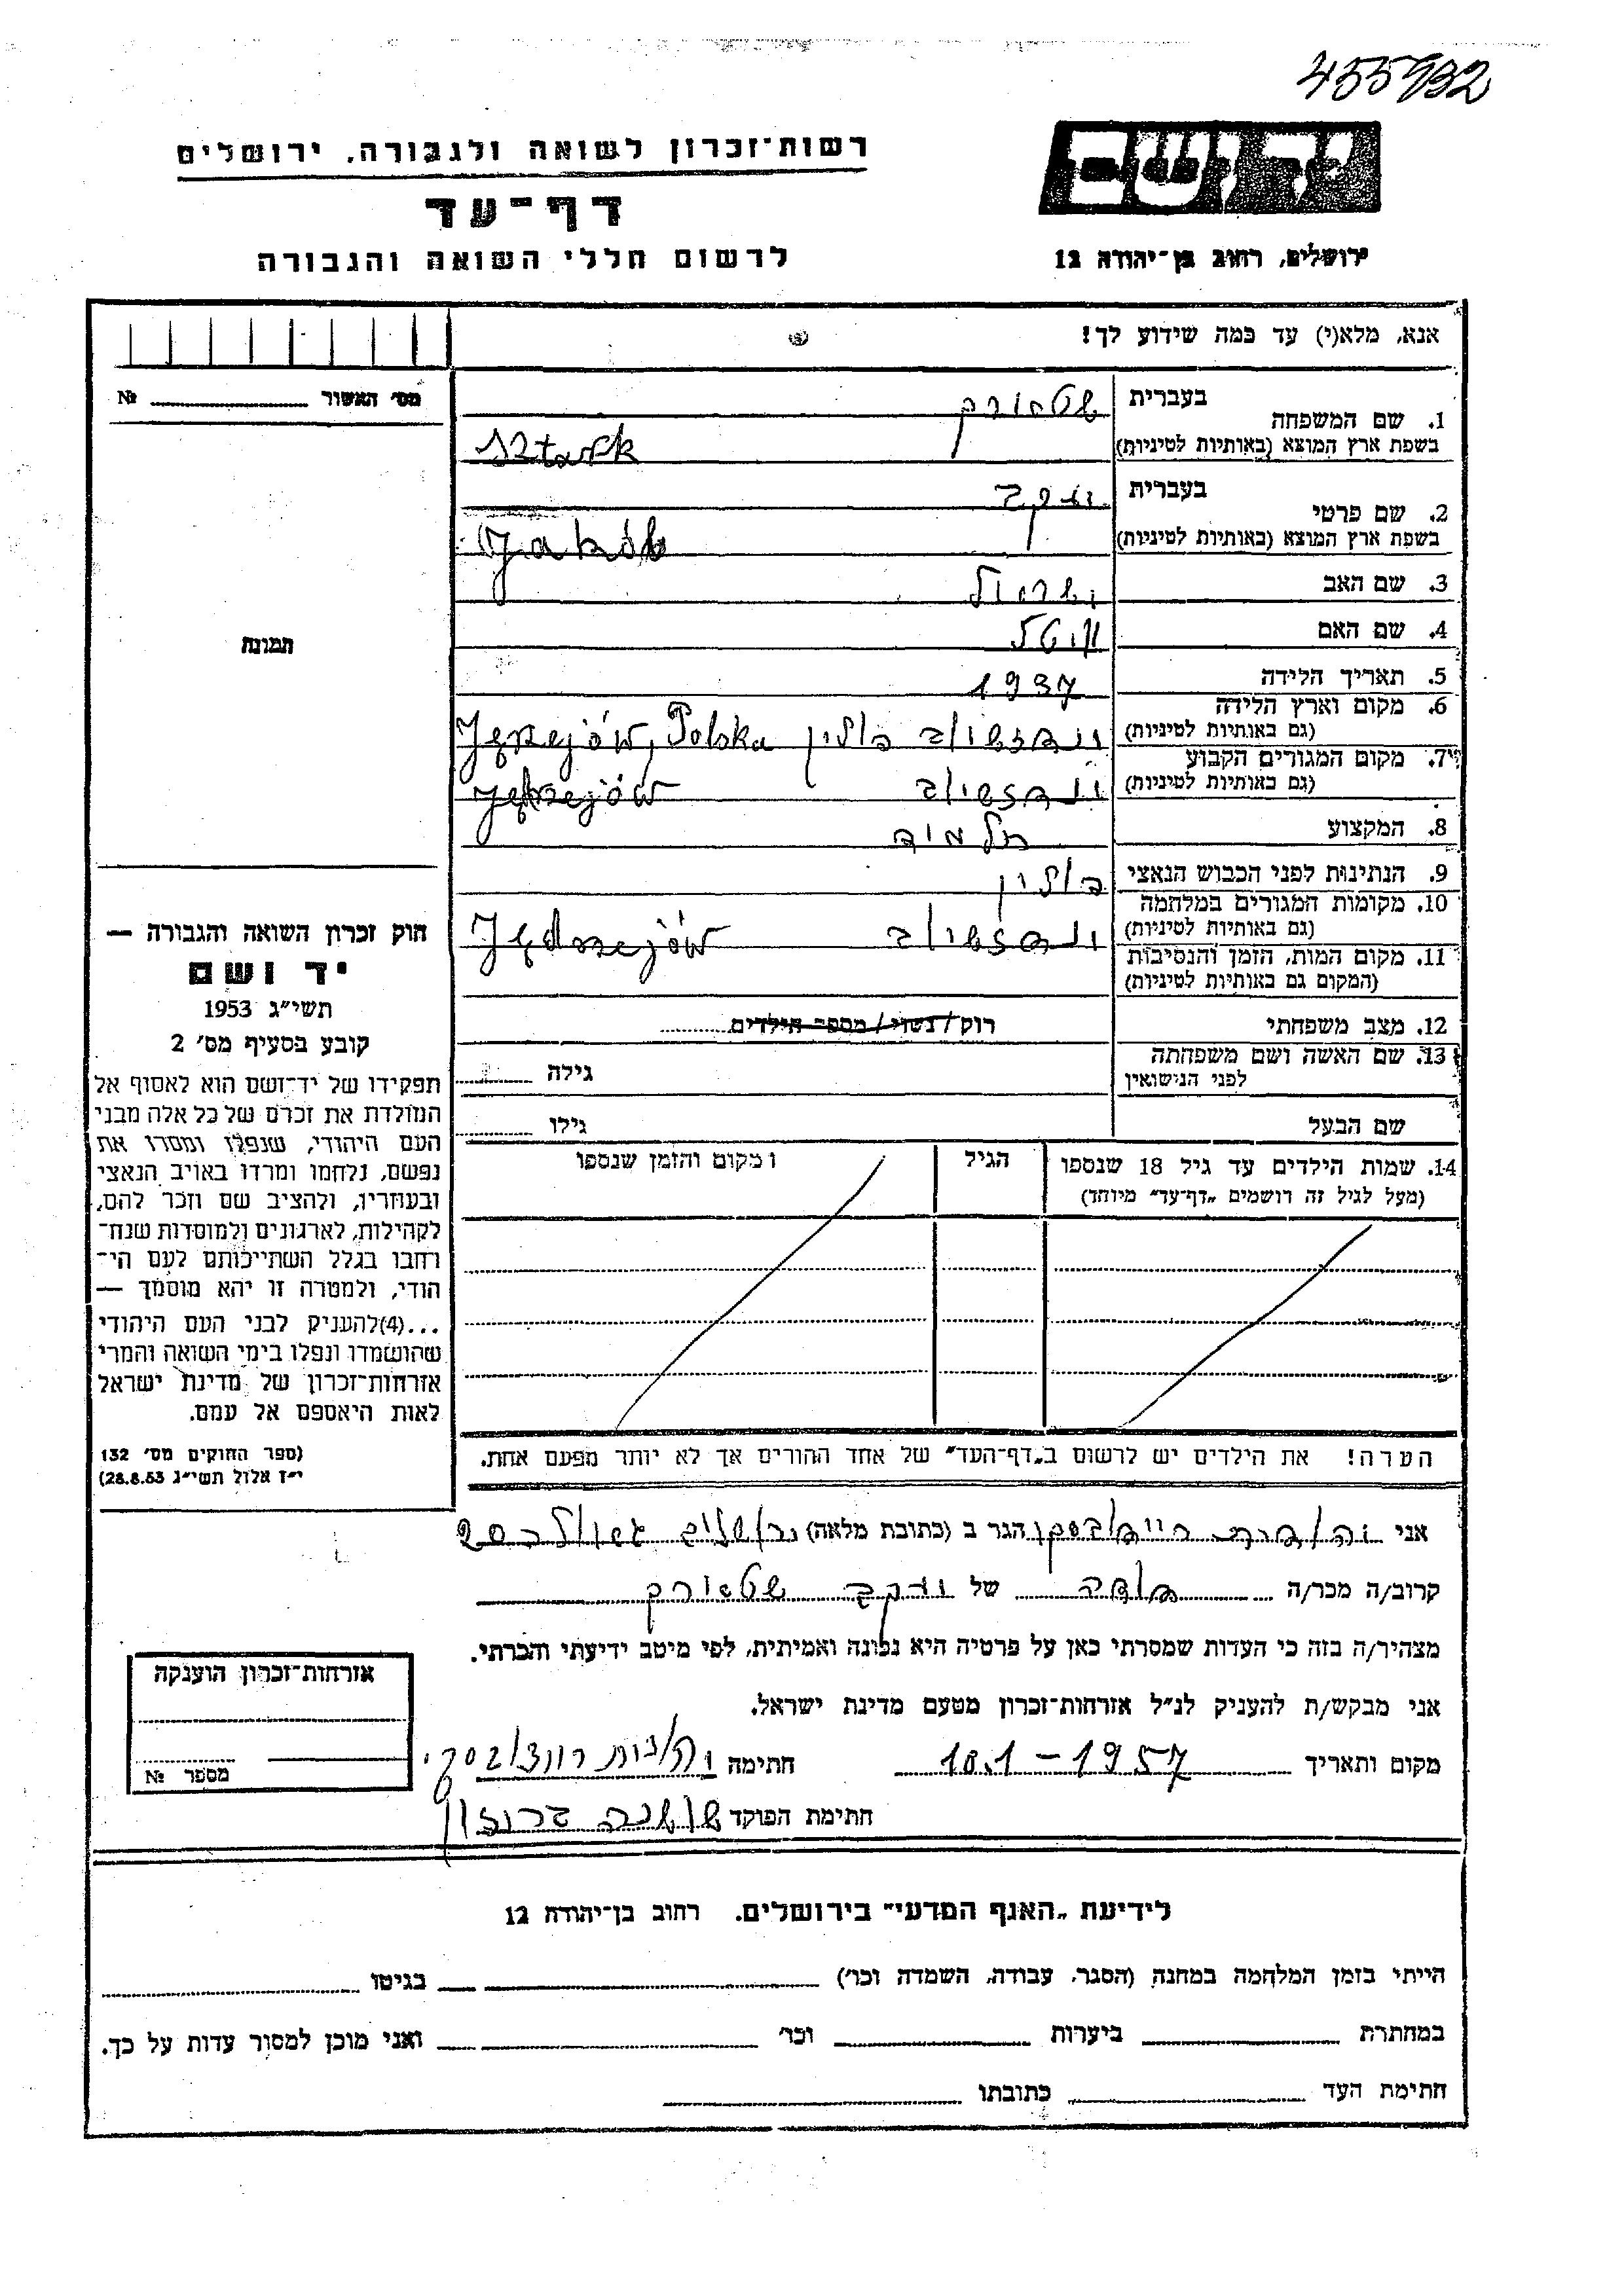 455932
יד ושם
רשות־זכרון לשואה ולגבורה, ירושלים
דף־עד
לרשום חללי השואה והגבורה
ירושלים, רחוב בן־יהודה 12
אנא, מלא(י) עד כמה שידוע לך!
מס' האשור №
תמונה
1. שם המשפחה בעברית שטארק
בשפת ארץ המוצא (באותיות לטיניות) Sztark
2. שם פרטי בעברית יעקב
בשפת ארץ המוצא (באותיות לטיניות) Jakób
3. שם האב ישראל
4. שם האם
5. תאריך הלידה 1937
6. מקום וארץ הלידה
(גם באותיות לטיניות) פולין Polska
7. מקום המגורים הקבוע
(גם באותיות לטיניות)
8. המקצוע תלמיד
9. הנתינות לפני הכבוש הנאצי פולין
10. מקומות המגורים במלחמה
(גם באותיות לטיניות) Jędrzejów
11. מקום המות, הזמן והנסיבות
(המקום גם באותיות לטיניות)
12. מצב משפחתי רוק/נשוי/מספר הילדים
13. שם האשה ושם משפחתה
לפני הנישואין גילה
שם הבעל גילו
14. שמות הילדים עד גיל 18 שנספו הגיל מקום והזמן שנספו
(מעל לגיל זה רושמים „דף־עד" מיוחד)
הערה! את הילדים יש לרשום ב„דף־העד" של אחד ההורים אך לא יותר מפעם אחת.
חוק זכרון השואה והגבורה —
יד ושם
תשי"ג 1953
קובע בסעיף מס' 2
תפקידו של יד־ושם הוא לאסוף אל
המולדת את זכרם של כל אלה מבני
העם היהודי, שנפלו ומסרו את
נפשם, נלחמו ומרדו באויב הנאצי
ובעוזריו, ולהציב שם וזכר להם,
לקהילות, לארגונים ולמוסדות שנח־
רחבו בגלל השתייכותם לעם הי־
הודי, ולמטרה זו יהא מוסמך —
...(4)להעניק לבני העם היהודי
שהושמדו ונפלו בימי השואה והמרי
אזרחות־זכרון של מדינת ישראל
לאות היאספם אל עמם.
(ספר החוקים מס' 132
י"ז אלול תשי"ג 28.8.53)
אני הגר ב (כתובת מלאה)
קרוב/ה מכר/ה דודה של יעקב שטארק
מצהיר/ה בזה כי העדות שמסרתי כאן על פרטיה היא נכונה ואמיתית, לפי מיטב ידיעתי והכרתי.
אני מבקש/ת להעניק לנ"ל אזרחות־זכרון מטעם מדינת ישראל.
מקום ותאריך 10.1 - 1957 חתימה
חתימת הפוקד שושנה
אזרחות־זכרון הוענקה
מספר №
לידיעת „האגף המדעי" בירושלים. רחוב בן־יהודה 12
הייתי בזמן המלחמה במחנה (הסגר, עבודה, השמדה וכו') בגיטו
במחתרת ביערות וכו' ואני מוכן למסור עדות על כך.
חתימת העד כתובתו